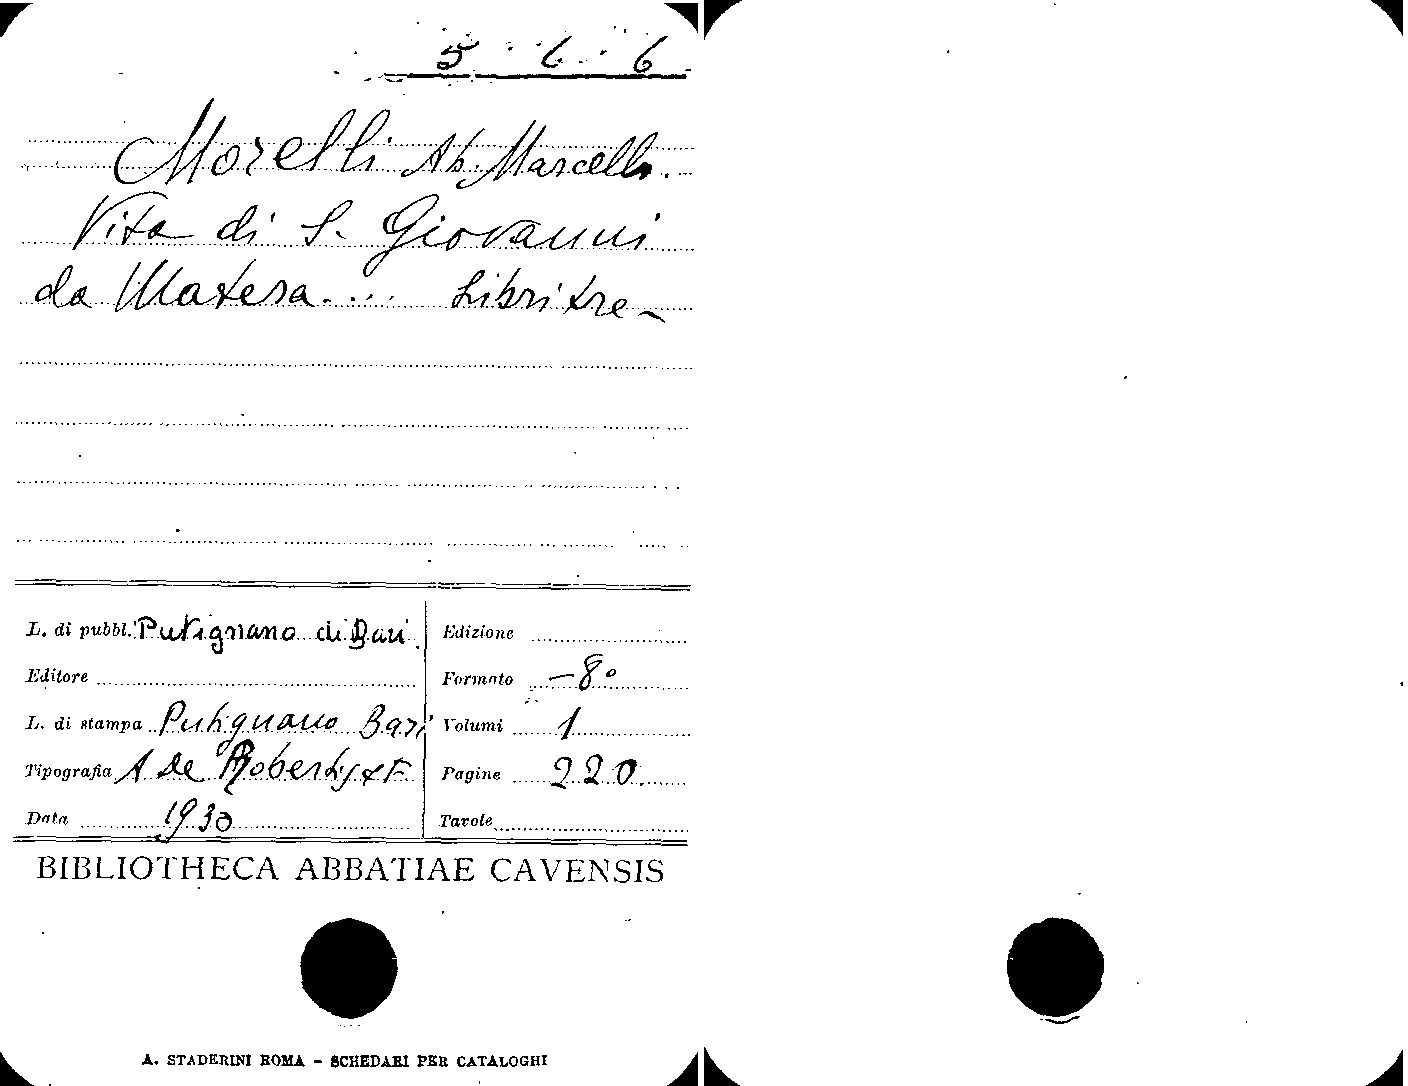 5 · 6 · 6
Morelli Ab. Marcello.
Vita di S. Giovanni
da Matera. ... Libri tre -
L. di pubbl. Putignano di Bari
Editore
L. di stampa Putignano Bari
Tipografia A De Robertis & F.
Data 1930
Edizione
Formato -8°
Volumi 1
Pagine 220
Tavole
BIBLIOTHECA ABBATIAE CAVENSIS
A. STADERINI ROMA - SCHEDARI PER CATALOGHI